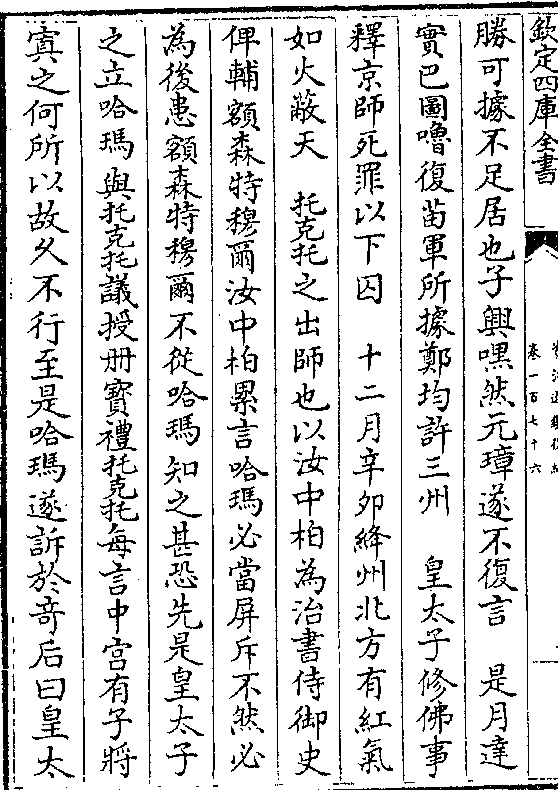 欽定四庫全書
卷一百七十六
勝可據不足居也子興嘿然元璋遂不復言　是月達
實巴圖嚕復苗軍所據鄭均許三州　皇太子修佛事
釋京師死罪以下囚　十二月辛卯絳州北方有紅氣
如火蔽天　托克托之出師也以汝中柏為治書侍御史
俾輔額森特穆爾汝中柏累言哈瑪必當屏斥不然必
為後患額森特穆爾不從哈瑪知之甚恐先是皇太子
之立哈瑪與托克托議授册寶禮托克托每言中宮有子將
寘之何所以故久不行至是哈瑪遂訴於竒后曰皇太